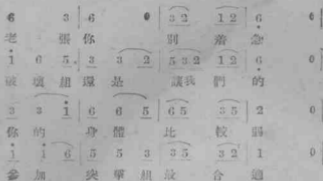 6 3 | 6 0 | 3 2 1 2 | 6 0
老 張 你 別 着 急
1 6 5 | 3 3 2 | 5 3 2 1 2 | 6
還 是 讓 我 們 的
3 3 1 | 6 6 5 | 6 5 3 5 | 2 0
你 的 身 體 比 較 弱
1 1 6 | 5 5 3 | 3 5 3 2 | 1 0
參 加 突 擊 組 最 合 適